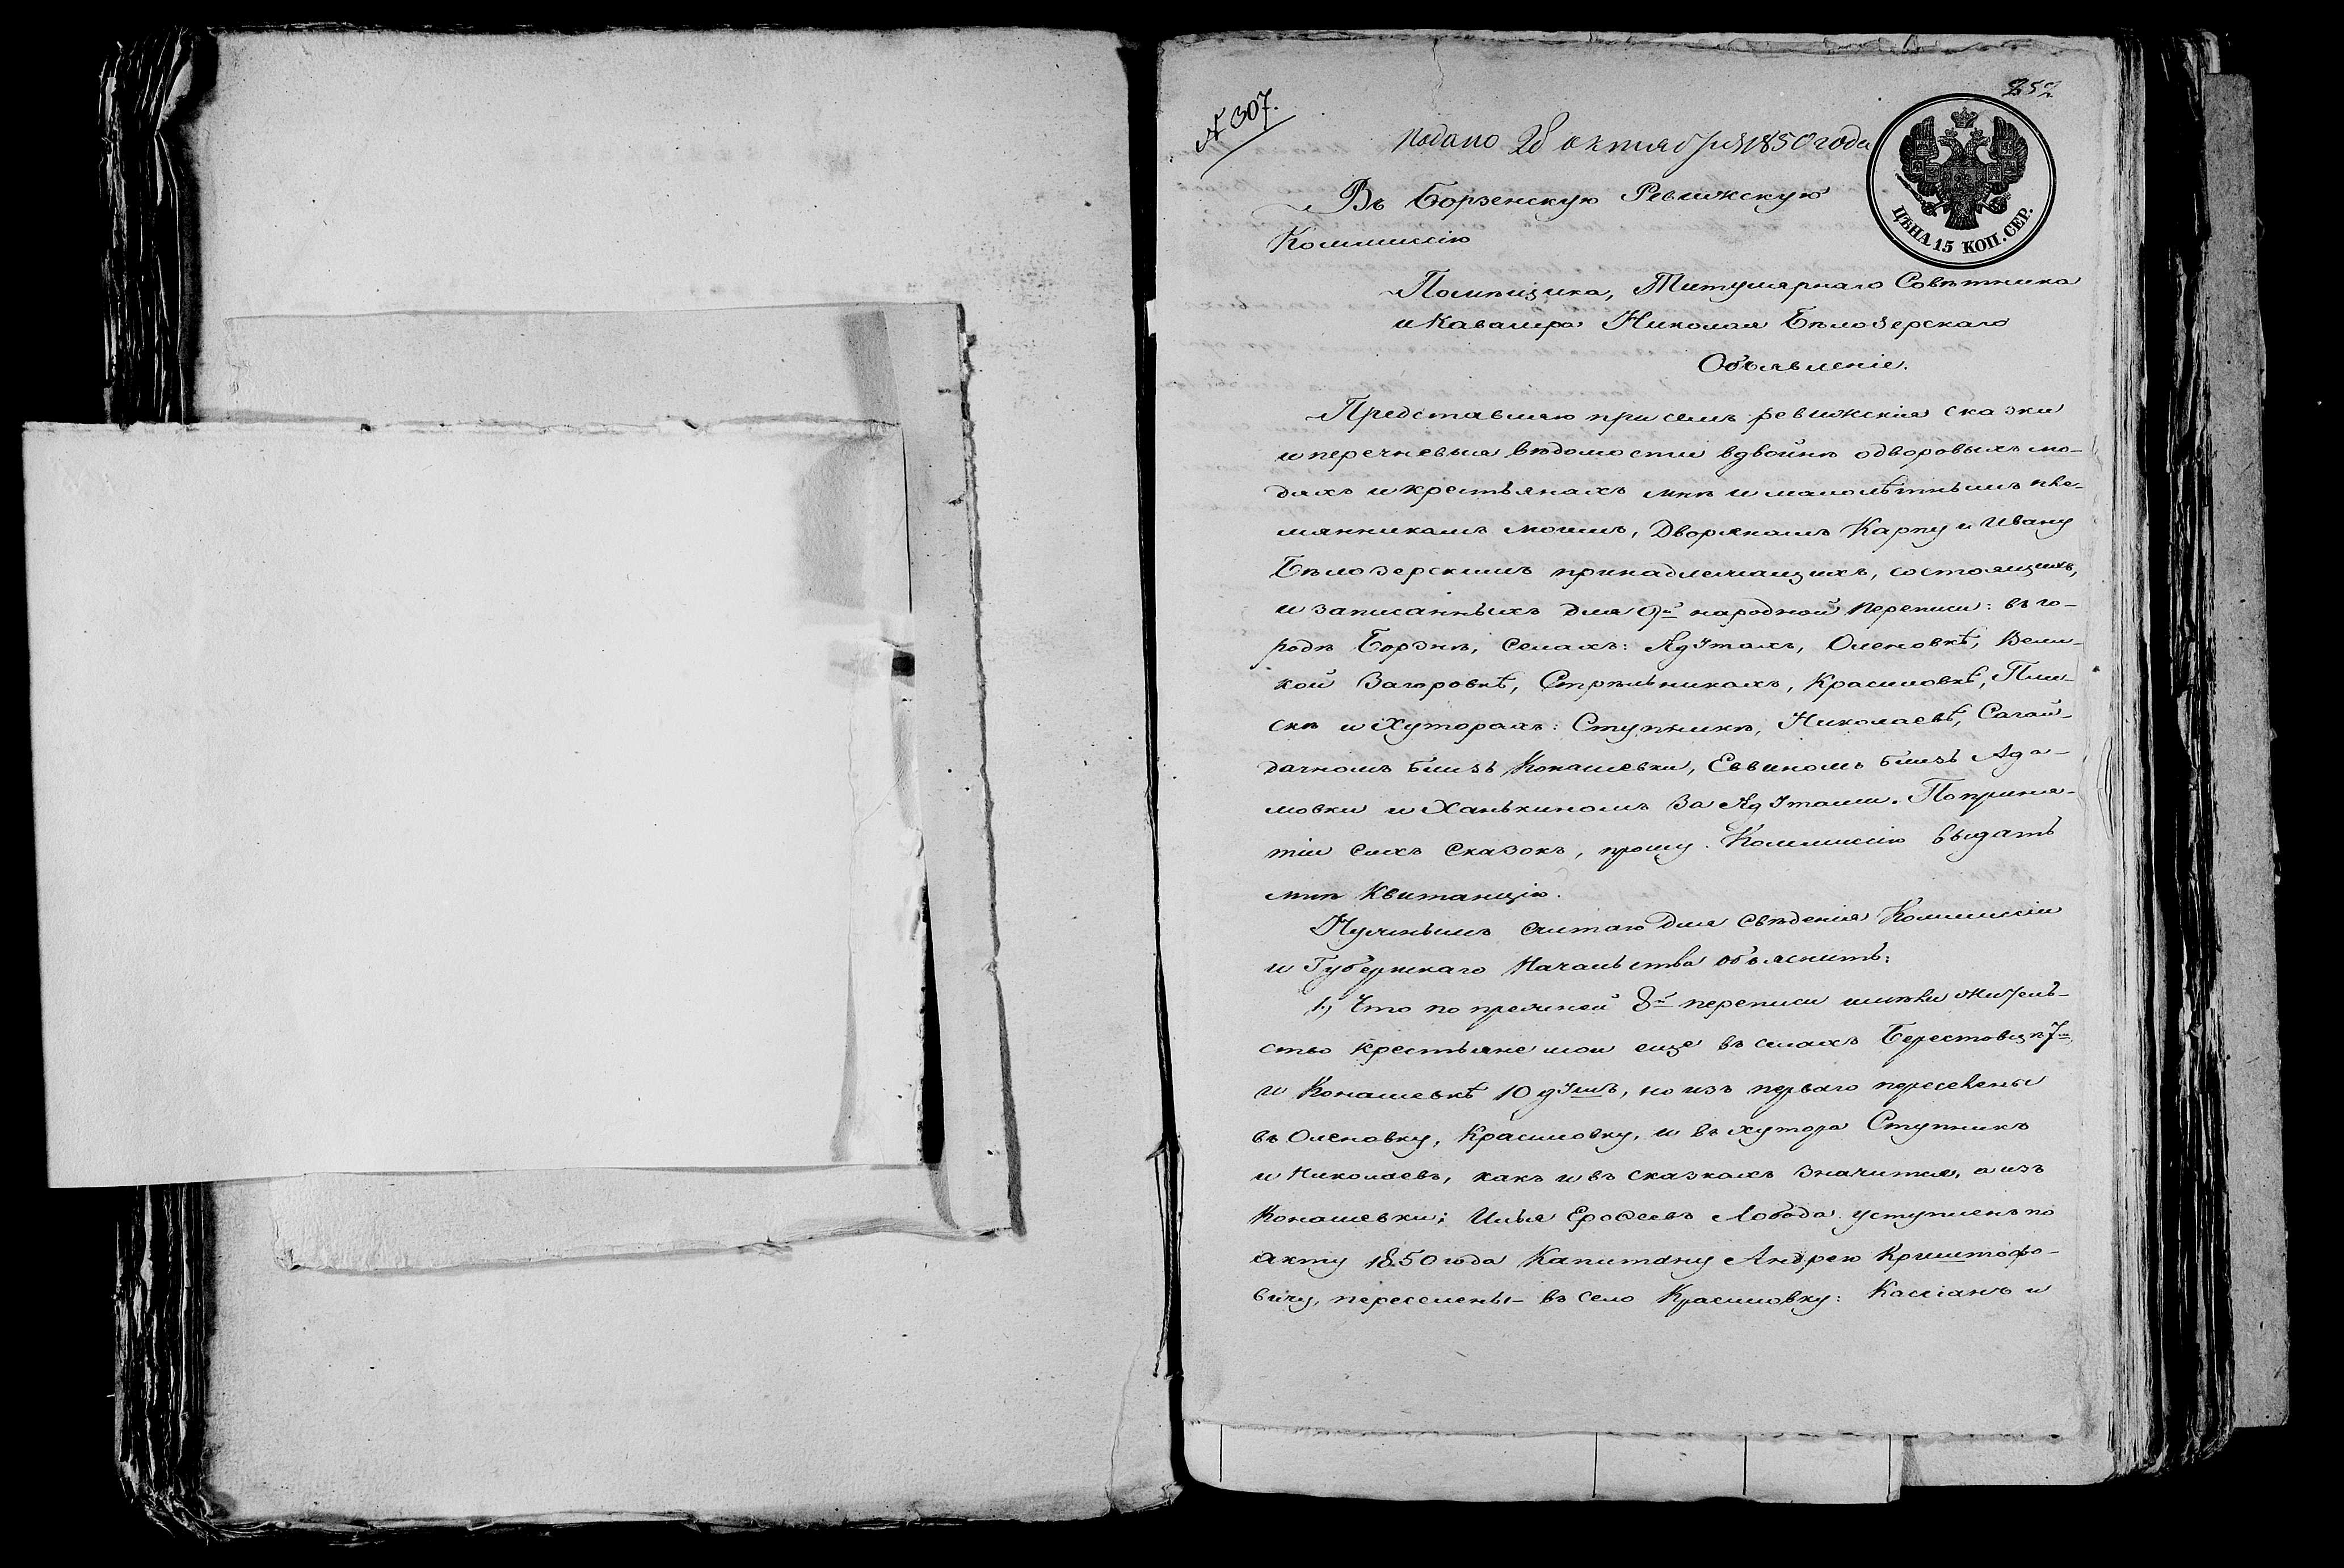 № 307.
852
подано 28 октября 1850 года
ЦѢНА 15 КОП. СЕР.
Въ Борзенскую Ревижскую
Коммиссію
Помѣщика, Титулярнаго Совѣтника
и Кавалера Николая Бѣлозерскаго
Объявленіе.
Представляю при семъ ревижскія сказки
и перечневыя вѣдомости вдвойнѣ о дворовыхъ лю-
дяхъ и крестьянахъ мнѣ и малолѣтнымъ пле-
мянникамъ моимъ, Дворянамъ Карпу и Ивану
Бѣлозерскимъ принадлежащихъ, состоящихъ,
и записанныхъ для 9й народной переписи: въ го-
родѣ Борзнѣ, селахъ: Ядутахъ, Оленовкѣ, Вели-
кой Загоровкѣ, Стрѣльникахъ, Красиловкѣ, Пли-
скѣ и Хуторахъ: Ступникѣ, Николаевѣ, Сагай-
дачномъ близь Конашевки, Еввиномъ близь Ада-
мовки и Ханькиномъ за Ядутами. По приня-
тіи сихъ сказокъ, прошу Коммиссію выдать
мнѣ Квитанцію.
Нужнымъ считаю для свѣденія Коммиссіи
и Губернскаго Начальства объяснить:
1.) Что по прежней 8й переписи имѣли житель-
ство крестьяне мои еще въ селахъ Берестовцѣ 7
и Конашевкѣ 10 душъ, но изъ перваго переселены
въ Оленовку, Красиловку, и въ хутора Ступникъ
и Николаевъ, какъ и въ сказкахъ значится, а изъ
Конашевки: Илья Ерофеевъ Лобода уступленъ по
акту 1850 года Капитану Андрею Криштофо-
вичу, переселены въ село Красиловку: Кассіанъ и